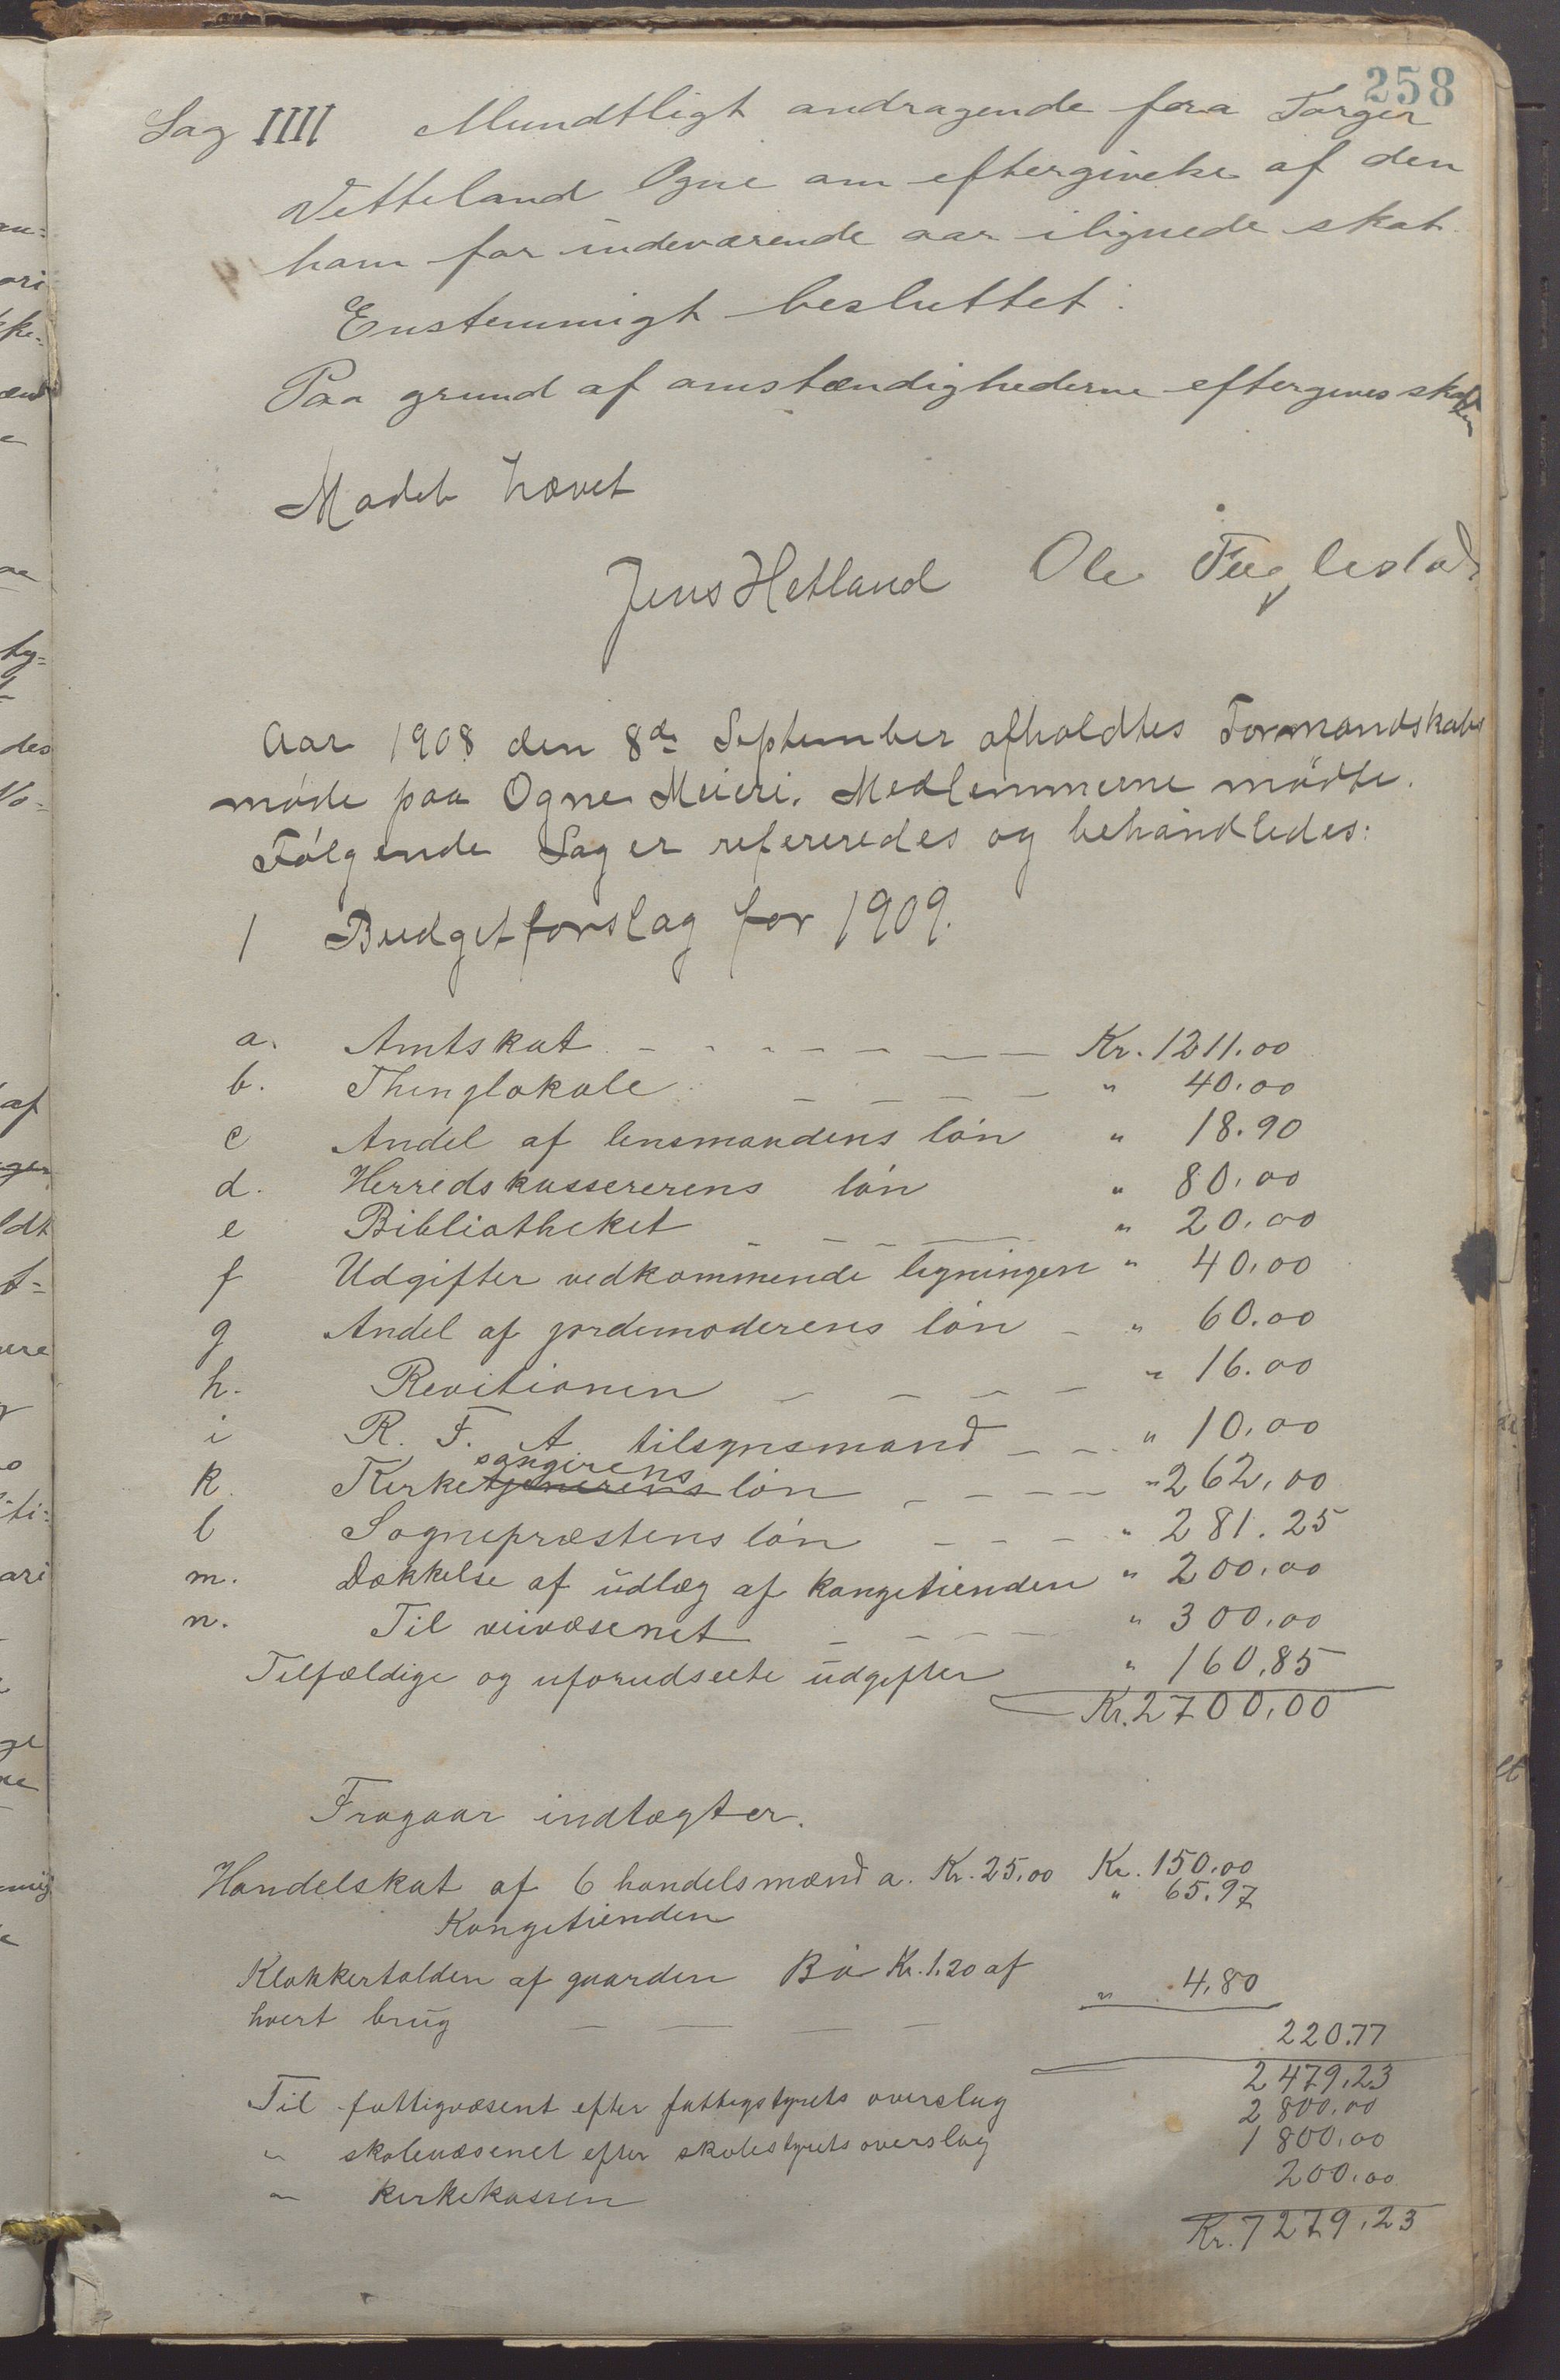 258
Sag IIII Mundtligt andragende fora Torger
Vetteland Ogne om eftergivelse af den
ham for indeværende aar ilignede skat.
Enstemmigt besluttet:
Paa grund af omstændighederne eftergives skatten
Mødet hævet
Jens Hetland Ole Fuglestad
Aar 1908 den 8de September afholdtes Formandskabs
møde paa Ogne Meieri. Medlemmerne mødte.
Følgende Sager refereredes og behandledes:
1 Budgetforslag for 1909.
a. Amtskat Kr. 1211.00
b. Thinglokale " 40.00
c Andel af lensmandens løn " 18.90
d. Herredskassererens løn " 80.00
e Bibliotheket " 20.00
f Udgifter vedkommende ligningen " 40.00
g Andel af jordemoderens løn " 60.00
h. Revitionen " 16.00
i R. F. A tilsynsmand " 10.00
sangerens
k. Kirketjenerens løn " 262.00
l Sogneprestens løn " 281.25
m. Dækkelse af udlæg af kongetienden " 200.00
n. Til veivæsenet " 300.00
Tilfældige og uforudseete udgifter " 160.85
Kr. 2700.00
Fragaar indtægter.
Handelskat af 6 handelsmænd a. Kr. 25.00 Kr. 150.00
Kongetienden " 65.97
Klokkertolden af gaarden Bø Kr. 1.20 af
hvert brug " 4.80
220.77
2479.23
Til fattigvæsent efter fattigstyrets overslag 2800.00
" skolevæsenet efter skolestyrets overslag 1800.00
" kirkekassen 200.00
Kr. 7279.23